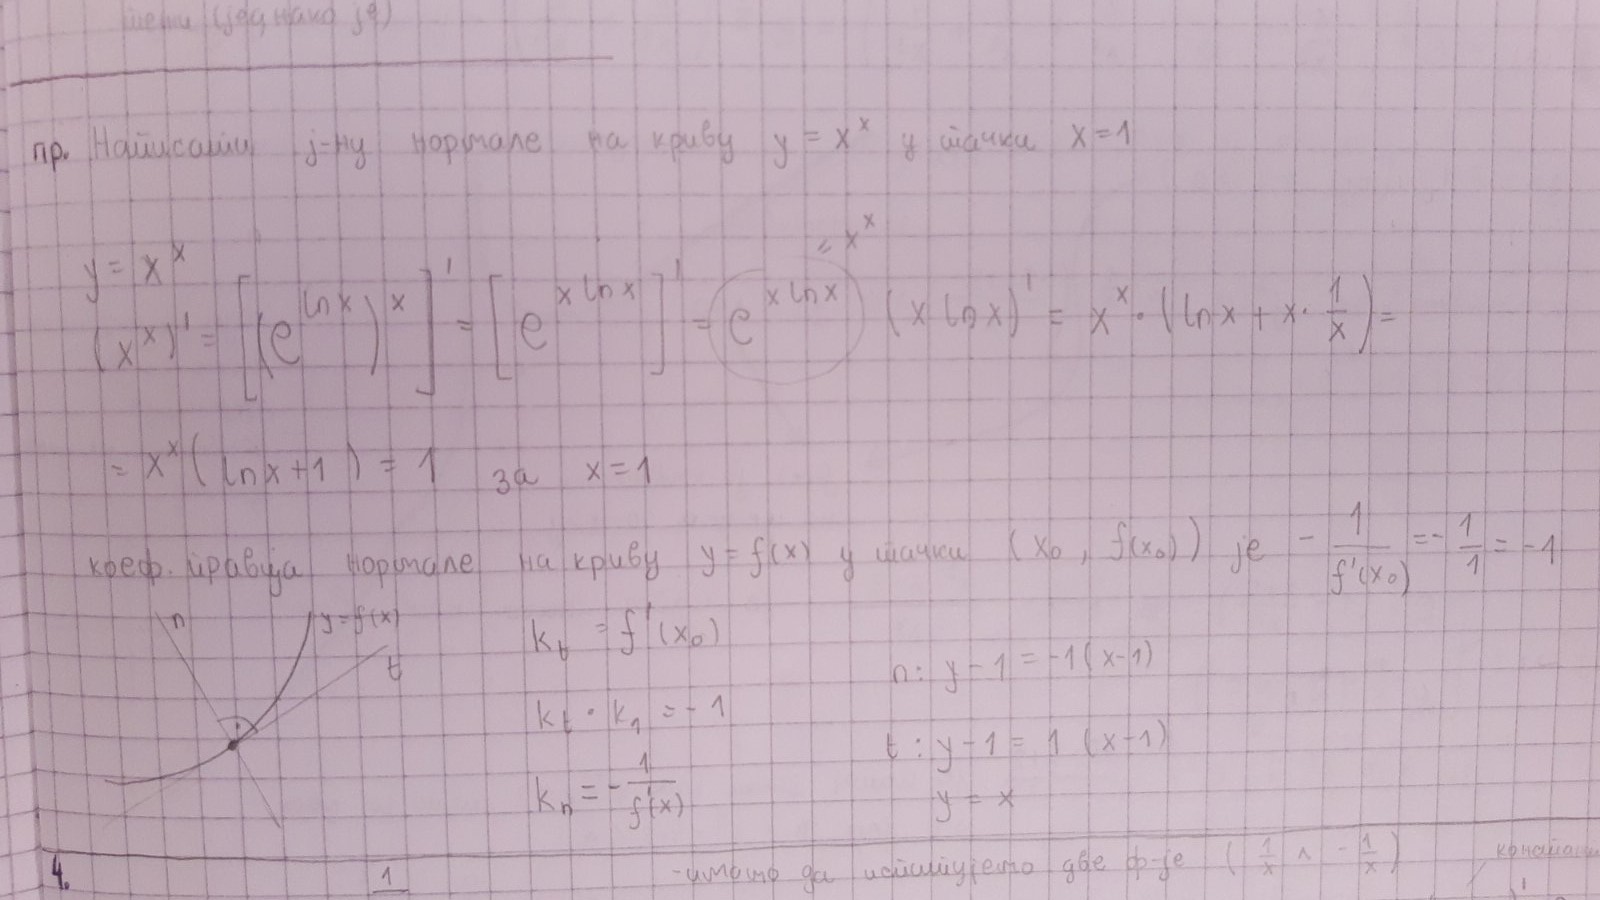 (једнако је)
пр. Написати ј-ну нормале на криву y = x^x у тачки x = 1
= x^x
y = x^x
(x^x)' = [(e^{ln x})^x]' = [e^{x ln x}]' = e^{x ln x} (x ln x)' = x^x · (ln x + x · 1/x) =
= x^x (ln x + 1) = 1 за x = 1
коеф. правца нормале на криву y = f(x) у тачки (x₀, f(x₀)) је - 1/f'(x₀) = - 1/1 = -1
n y = f(x) t
k_t = f'(x₀)
k_t · k_n = -1
k_n = - 1/f'(x)
n: y - 1 = -1(x-1)
t: y - 1 = 1 (x-1)
y = x
4. 1 - имамо да испитујемо две ф-је (1/x ∧ - 1/x)